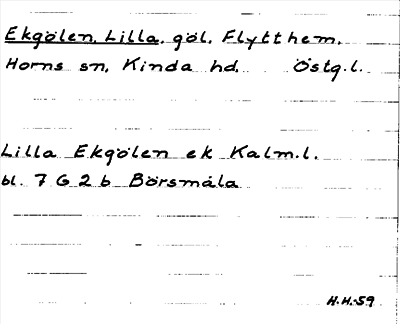 Ekgölen, Lilla, göl, Flytthem,
Horns sn, Kinda hd, Östg.l.
Lilla Ekgölen ek Kalm.l.
bl. 7 G 2 b Börsmåla
H.H.-59